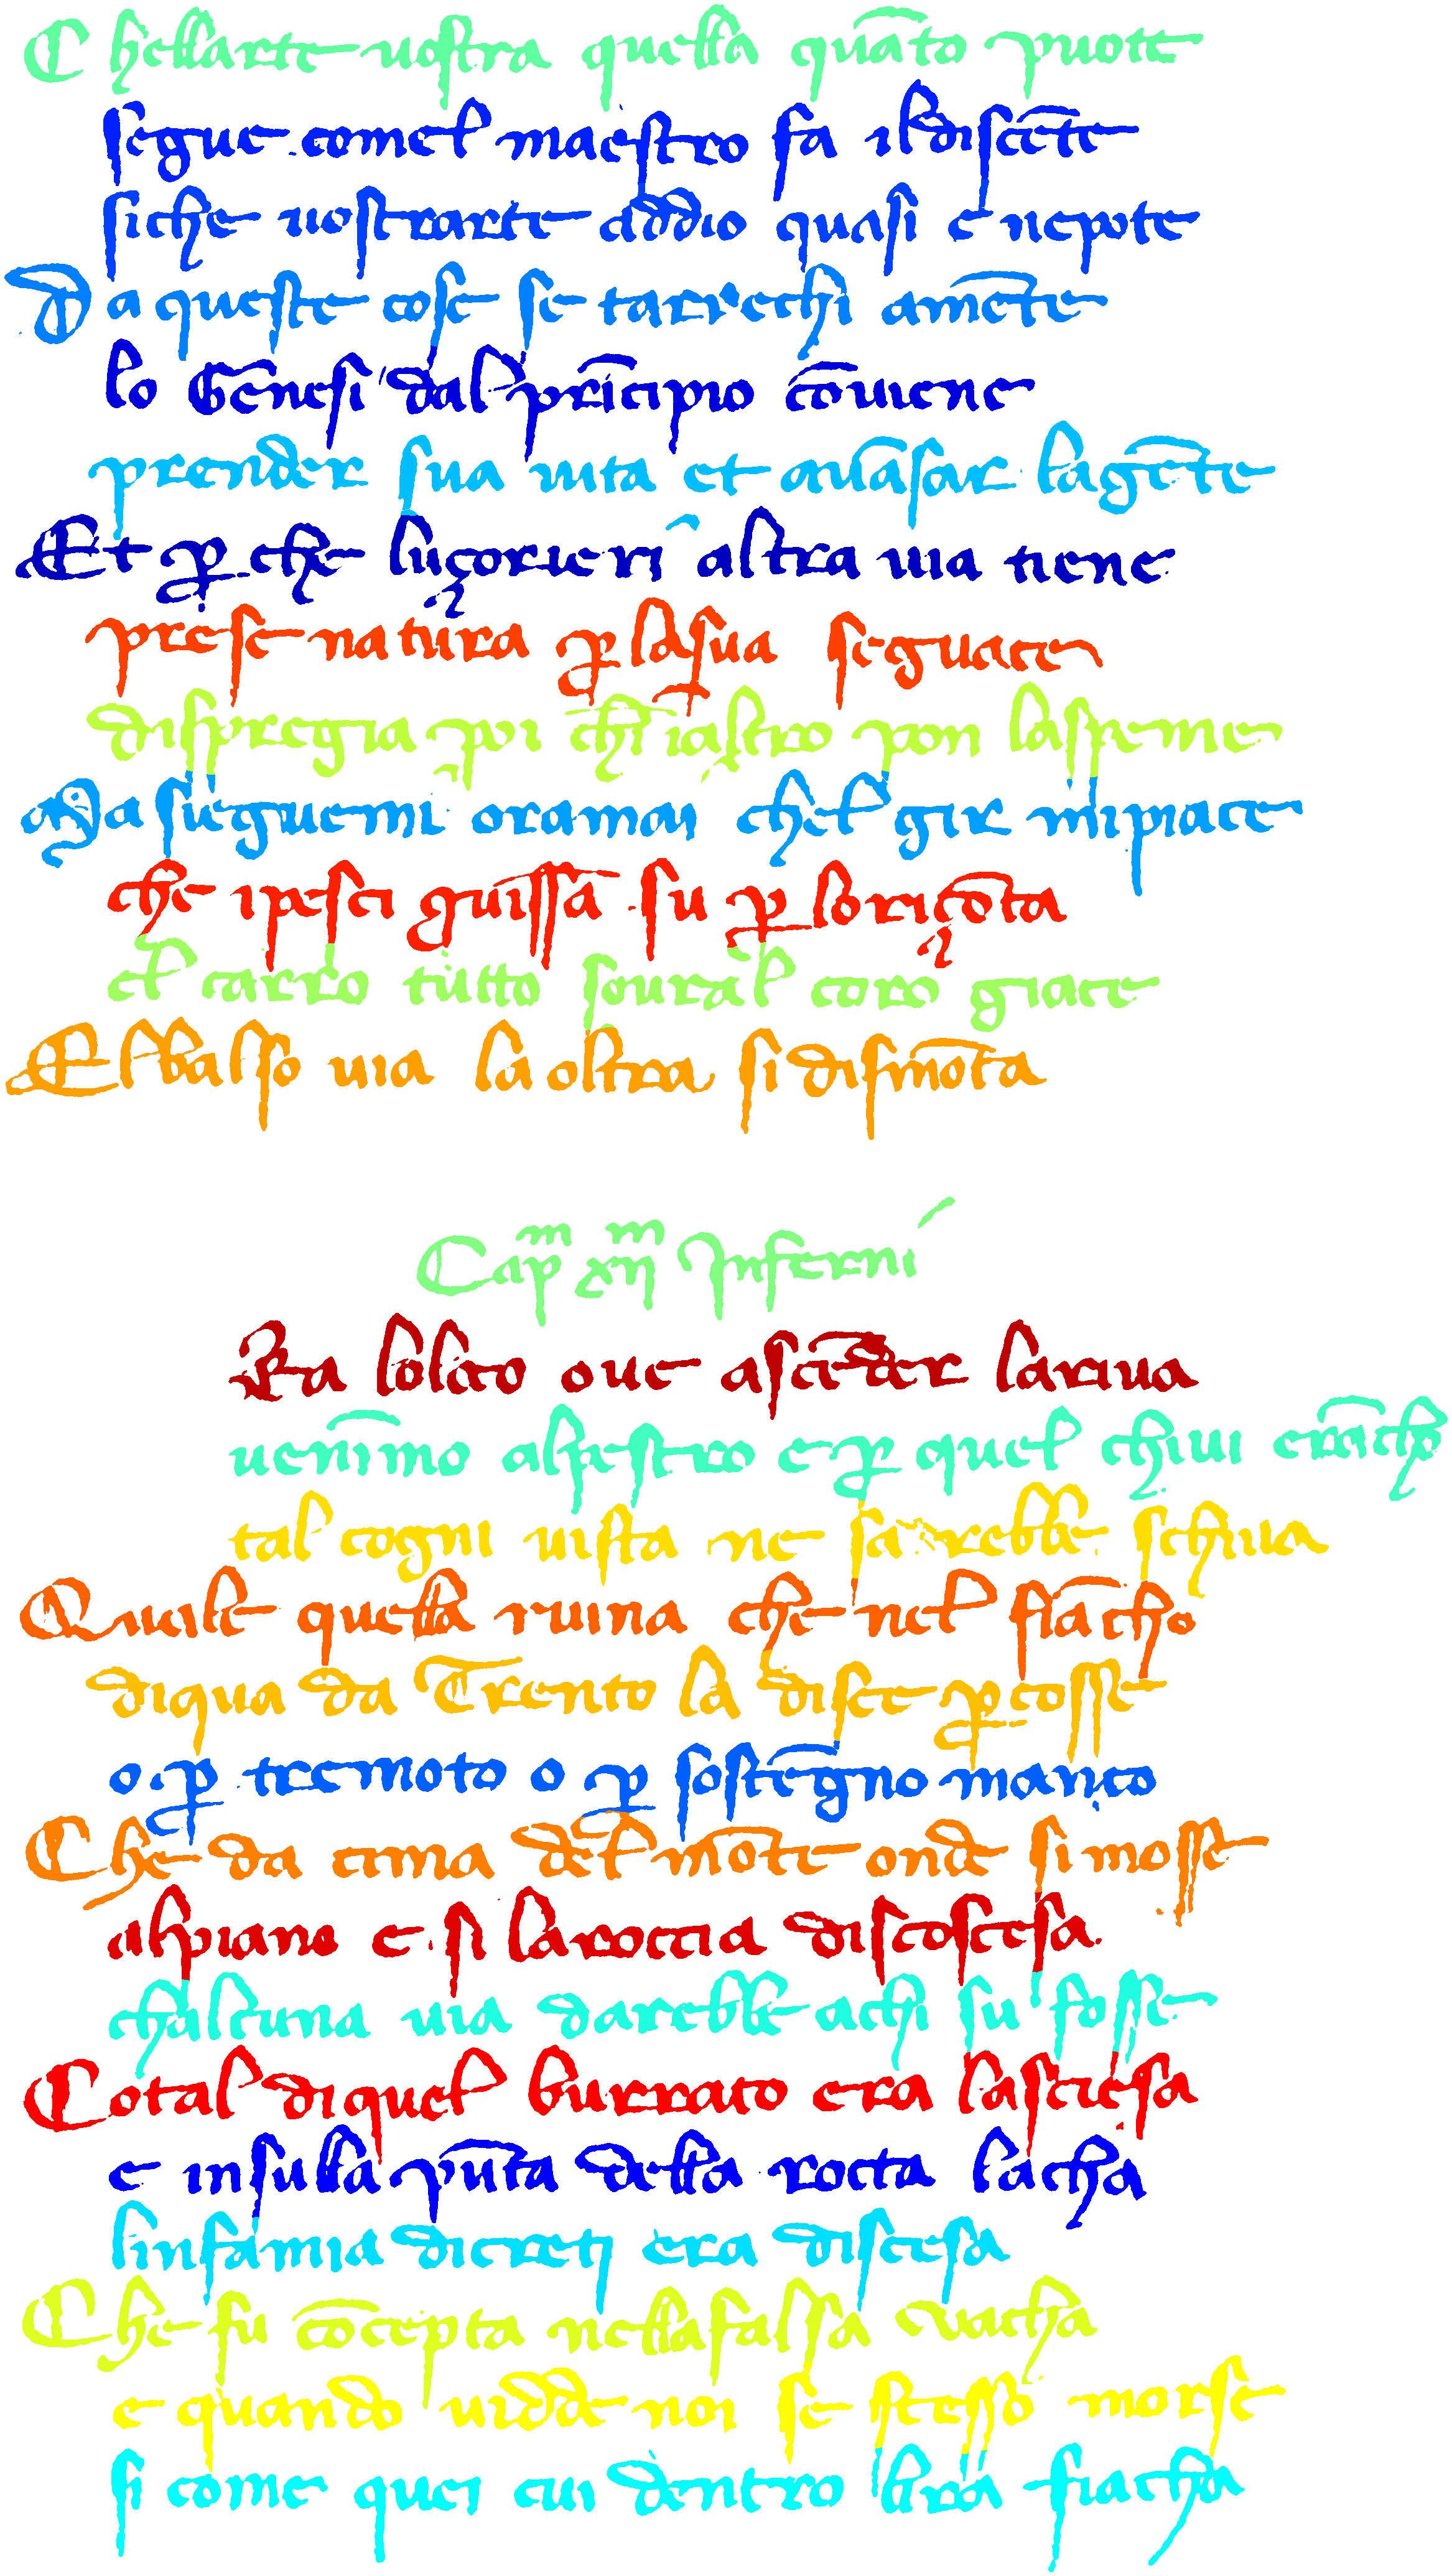 C hellarte uostra quella quāto puote
segue comel maestro fa il discēte
siche uostrarte addio quasi e nepote
D a queste cose se tarrechi amēte
lo Gēnesi dal prīcipio cōuiene
prender sua uita et auāsar lagēte
Et ꝑ che luçorieri altra uia tiene
prese natura ꝑ lasua seguace
dispregia poi chī ialtro pon laspeme
Ma sieguemi oramai chel gir mipiace
che ipesci guissā su ꝑ loriçōta
el carro tutto soural coro giace
El balso uia la oltra si dismōta
Capᵐ xijᵐ Inferni
Era lolico oue ascēder lariua
uenīmo alpestro e ꝑ quel chiui erācho
tal cogni uista ne sarebbe schiua
Quale quella ruina che nel fiācho
diqua da Trento la disce ꝑcosse
o ꝑ tremoto o ꝑ sostēgno manco
Che da cima del mōte onde si mosse
alpiano e si laroccia discoscesa
chalcuna uia darebbe achi su fosse
Cotal diquel burrato era lascesa
e insulla pūta della rocta lacha
linfamia dicreti era discesa
Che fu cōcepta nellafalsa vacha
e quando uidde noi se stesso morse
si come quei cui dentro lira fiacha